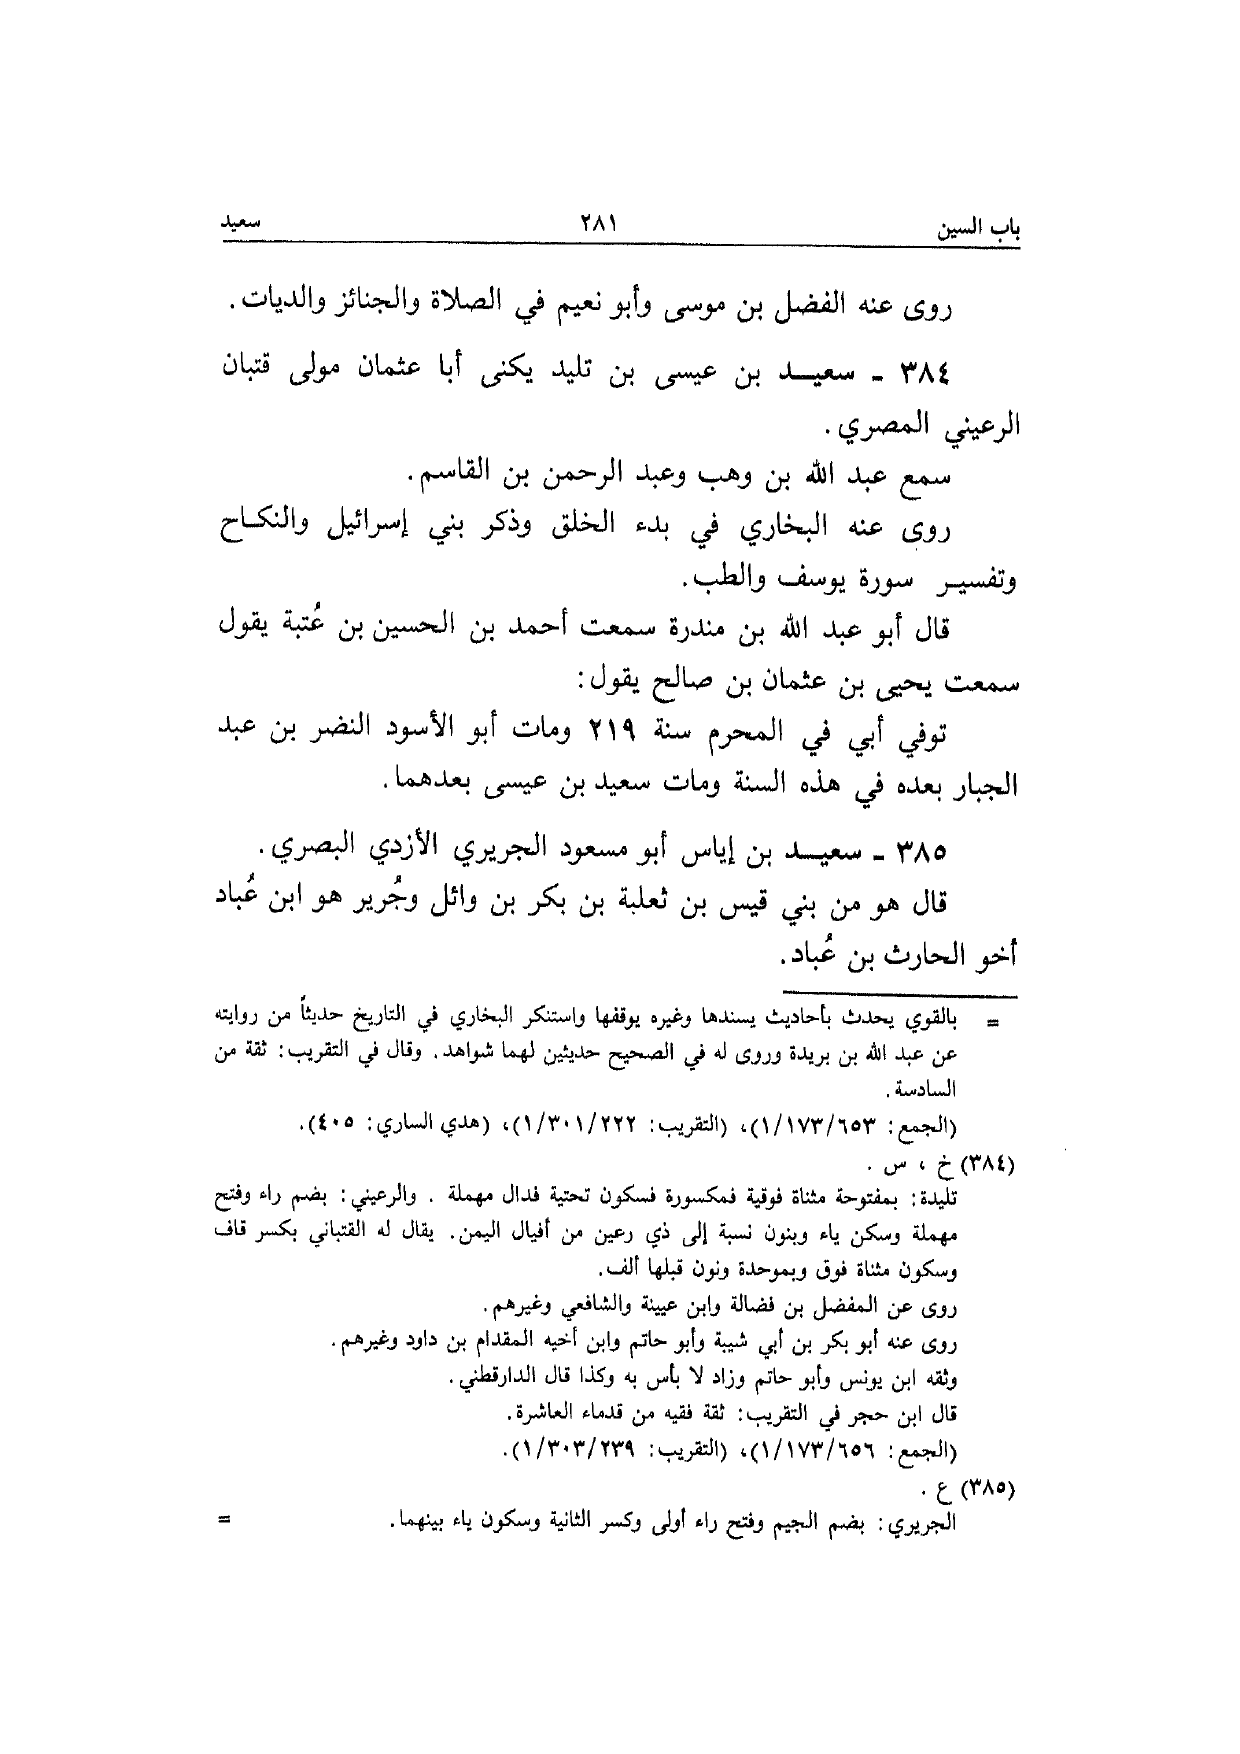 باب السين ٢٨١ سعيد
روى عنه الفضل بن موسى وأبو نعيم في الصلاة والجنائز والديات.
٣٨٤ ـ سعيــد بن عيسى بن تليد يكنى أبا عثمان مولى قتبان
الرعيني المصري.
سمع عبد الله بن وهب وعبد الرحمن بن القاسم.
روى عنه البخاري في بدء الخلق وذكر بني إسرائيل والنكاح
وتفسيـر سورة يوسف والطب.
قال أبو عبد الله بن مندرة سمعت أحمد بن الحسين بن عُتبة يقول
سمعت يحيى بن عثمان بن صالح يقول:
توفي أبي في المحرم سنة ٢١٩ ومات أبو الأسود النضر بن عبد
الجبار بعده في هذه السنة ومات سعيد بن عيسى بعدهما.
٣٨٥ ـ سعيــد بن إياس أبو مسعود الجريري الأزدي البصري.
قال هو من بني قيس بن ثعلبة بن بكر بن وائل وجُرير هو ابن عُباد
أخو الحارث بن عُباد.
= بالقوي يحدث بأحاديث يسندها وغيره يوقفها واستنكر البخاري في التاريخ حديثاً من روايته
عن عبد الله بن بريدة وروى له في الصحيح حديثين لهما شواهد. وقال في التقريب: ثقة من
السادسة.
(الجمع: ١/١٧٣/٦٥٣)، (التقريب: ١/٣٠١/٢٢٢)، (هدي الساري: ٤٠٥).
(٣٨٤) خ ، س .
تليدة: بمفتوحة مثناة فوقية فمكسورة فسكون تحتية فدال مهملة . والرعيني: بضم راء وفتح
مهملة وسكن ياء وبنون نسبة إلى ذي رعين من أفيال اليمن. يقال له القتباني بكسر قاف
وسكون مثناة فوق وبموحدة ونون قبلها ألف.
روى عن المفضل بن فضالة وابن عيينة والشافعي وغيرهم.
روى عنه أبو بكر بن أبي شيبة وأبو حاتم وابن أخيه المقدام بن داود وغيرهم.
وثقه ابن يونس وأبو حاتم وزاد لا بأس به وكذا قال الدارقطني.
قال ابن حجر في التقريب: ثقة فقيه من قدماء العاشرة.
(الجمع: ١/١٧٣/٦٥٦)، (التقريب: ١/٣٠٣/٢٣٩).
(٣٨٥) ع .
الجريري: بضم الجيم وفتح راء أولى وكسر الثانية وسكون ياء بينهما. =